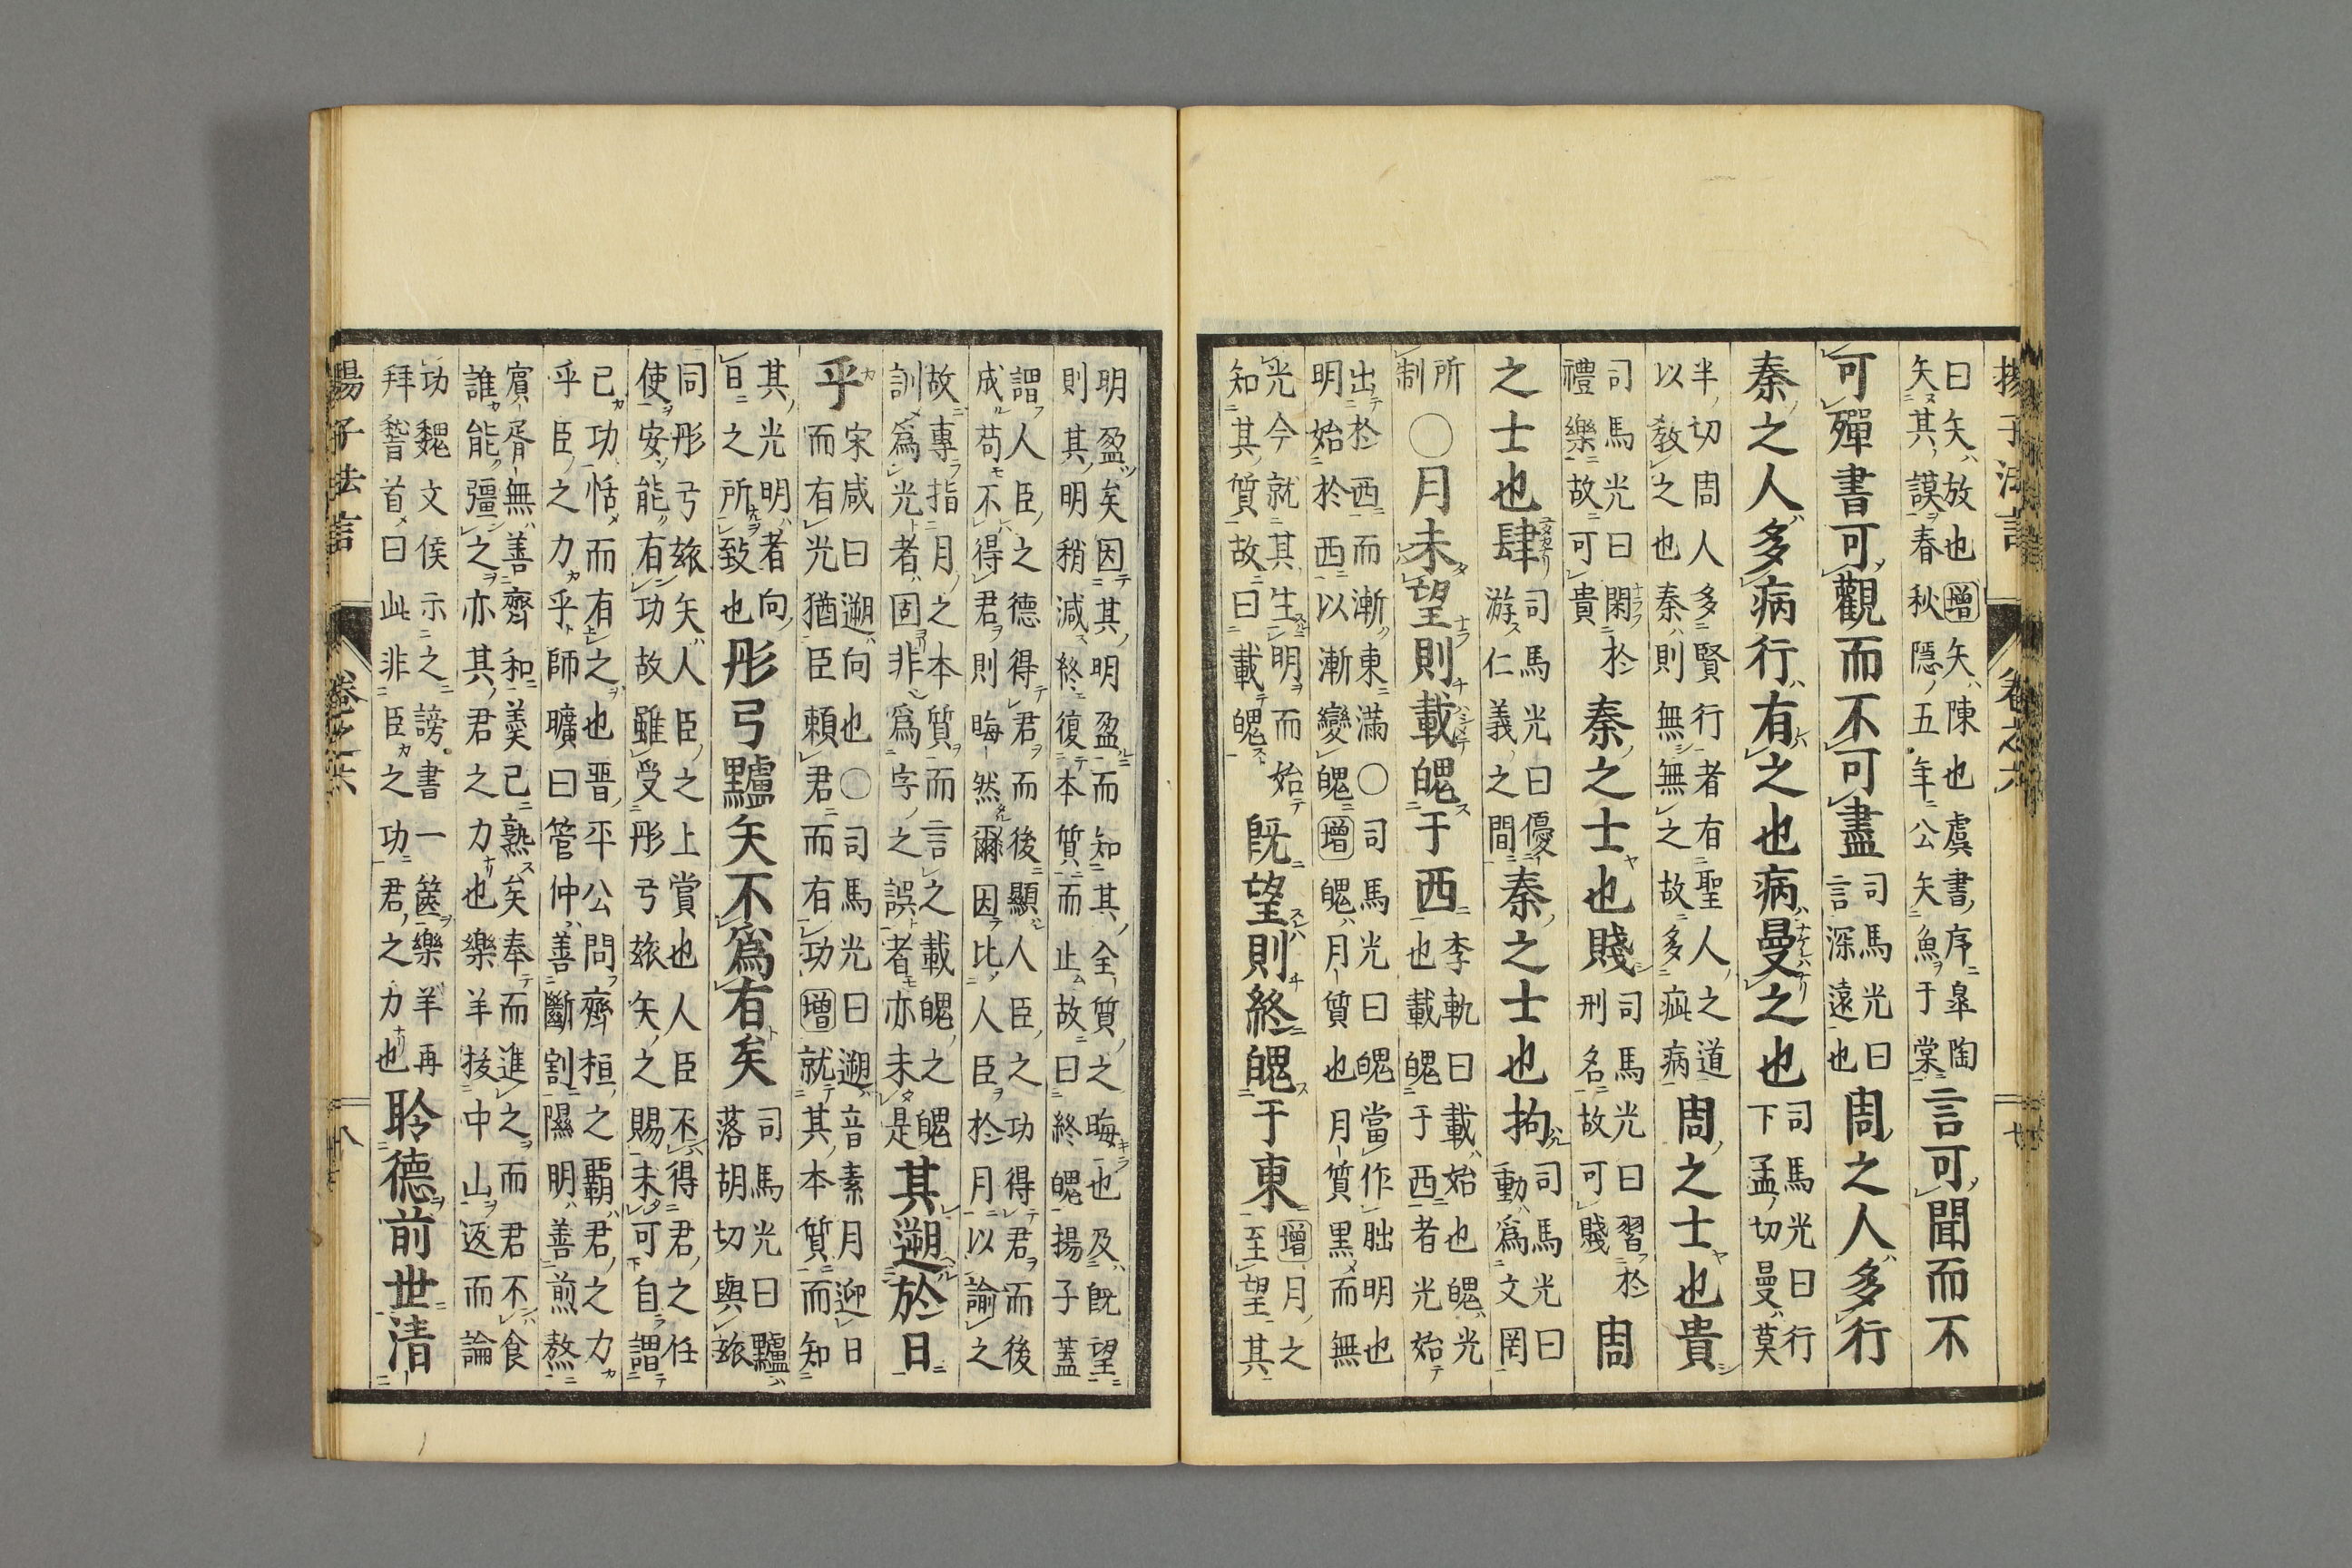 揚子法言 卷之六 七
曰矢放也增矢陳也虞書序皐陶
矢其謨春秋隱五年公矢魚于棠
言可聞而不
可殫書可觀而不可盡
司馬光曰
言深遠也
周之人多行
秦之人多病行有之也病曼之也
司馬光曰行
下孟切曼莫
半切周人多賢行者有聖人之道
以敎之也秦則無無之故多疵病
周之士也貴
司馬光曰閑於
禮樂故可貴
秦之士也賤
司馬光曰習於
刑名故可賤
周
之士也肆
司馬光曰優
游仁義之間
秦之士也拘
司馬光曰
動爲文罔
所
制
○月未望則載魄于西
李軌曰載始也魄光
也載魄于西者光始
出於西而漸東滿○司馬光曰魄當作朏明也
明始於西以漸變魄增魄月質也月質黒而無
光今就其生明而始
知其質故曰載魄
旣望則終魄于東
增月之
至望其
明盈矣因其明盈而知其全質之晦也及旣望
則其明稍減終復本質而止故曰終魄揚子蓋
謂人臣之德得君而後顯人臣之功得君而後
成苟不得君則晦然爾因比人臣於月以諭之
故專指月之本質而言之載魄之魄
訓爲光者固非爲字之誤者亦未是
其遡於日
乎
宋咸曰遡向也○司馬光曰遡音素月迎日
而有光猶臣頼君而有功增就其本質而知
其光明者向
日之所致也
彤弓黸矢不爲有矣
司馬光曰黸
落胡切與玈
同彤弓玈矢人臣之上賞也人臣不得君之任
使安能有功故雖受彤弓玈矢之賜未可自謂
已功恬而有之也晋平公問齊桓之覇君之力
乎臣之力乎師曠曰管仲善斷割隰明善煎熬
賓胥無善齊和羹已熟矣奉而進之而君不食
誰能彊之亦其君之力也樂羊拔中山返而論
功魏文侯示之謗書一篋樂羊再
拜稽首曰此非臣之功君之力也
聆德前世清
揚子法言 卷之六 八